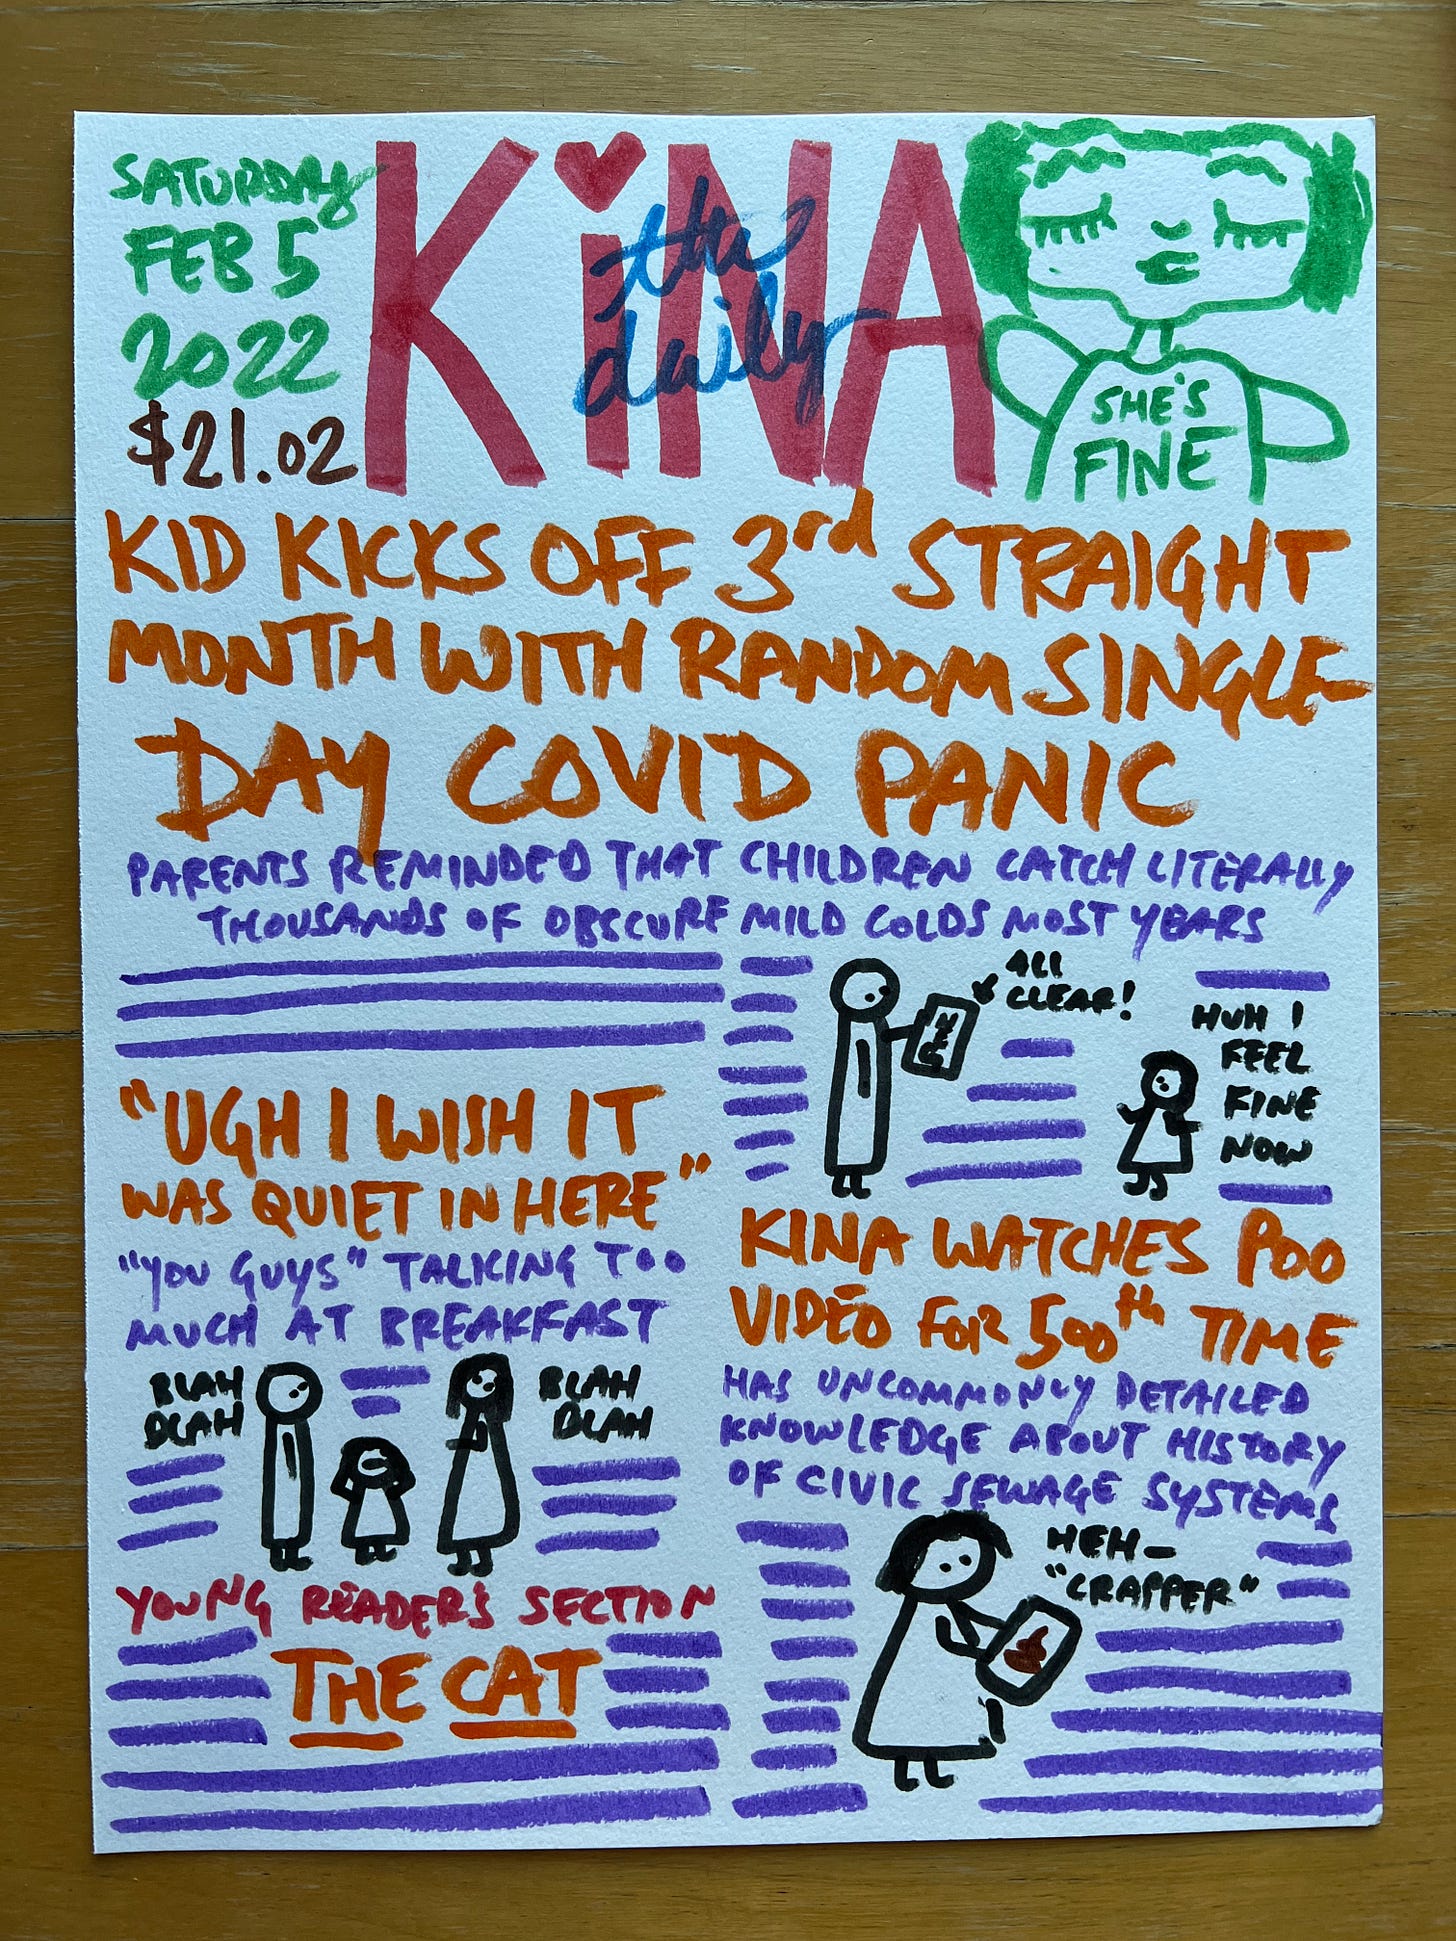 SATURDAY
FEB 5
2022
$21.02
KiNA
the
daily
SHE'S
FINE
KID KICKS OFF 3rd STRAIGHT
MONTH WITH RANDOM SINGLE-
DAY COVID PANIC
PARENTS REMINDED THAT CHILDREN CATCH LITERALLY
THOUSANDS OF OBSCURE MILD COLDS MOST YEARS
ALL
CLEAR!
NEG
HUH I
FEEL
FINE
NOW
"UGH I WISH IT
WAS QUIET IN HERE"
"YOU GUYS" TALKING TOO
MUCH AT BREAKFAST
BLAH
BLAH
BLAH
BLAH
KINA WATCHES POO
VIDEO FOR 500th TIME
HAS UNCOMMONLY DETAILED
KNOWLEDGE ABOUT HISTORY
OF CIVIC SEWAGE SYSTEMS
HEH—
"CRAPPER"
YOUNG READER'S SECTION
THE CAT